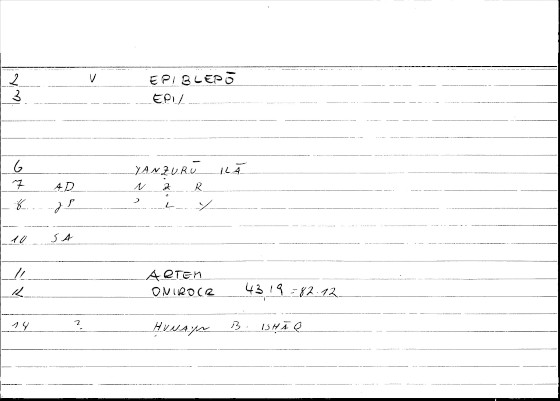 2 V EPIBLEPŌ
3 EPI/
6 YANẒURŪ ILĀ
7 AD N Ẓ R
8 ' L Y
10 SA
11 ARTEM
12 ONIROCR 43,19 = 82.12
14 ? ḤUNAYN B. ISḤĀQ